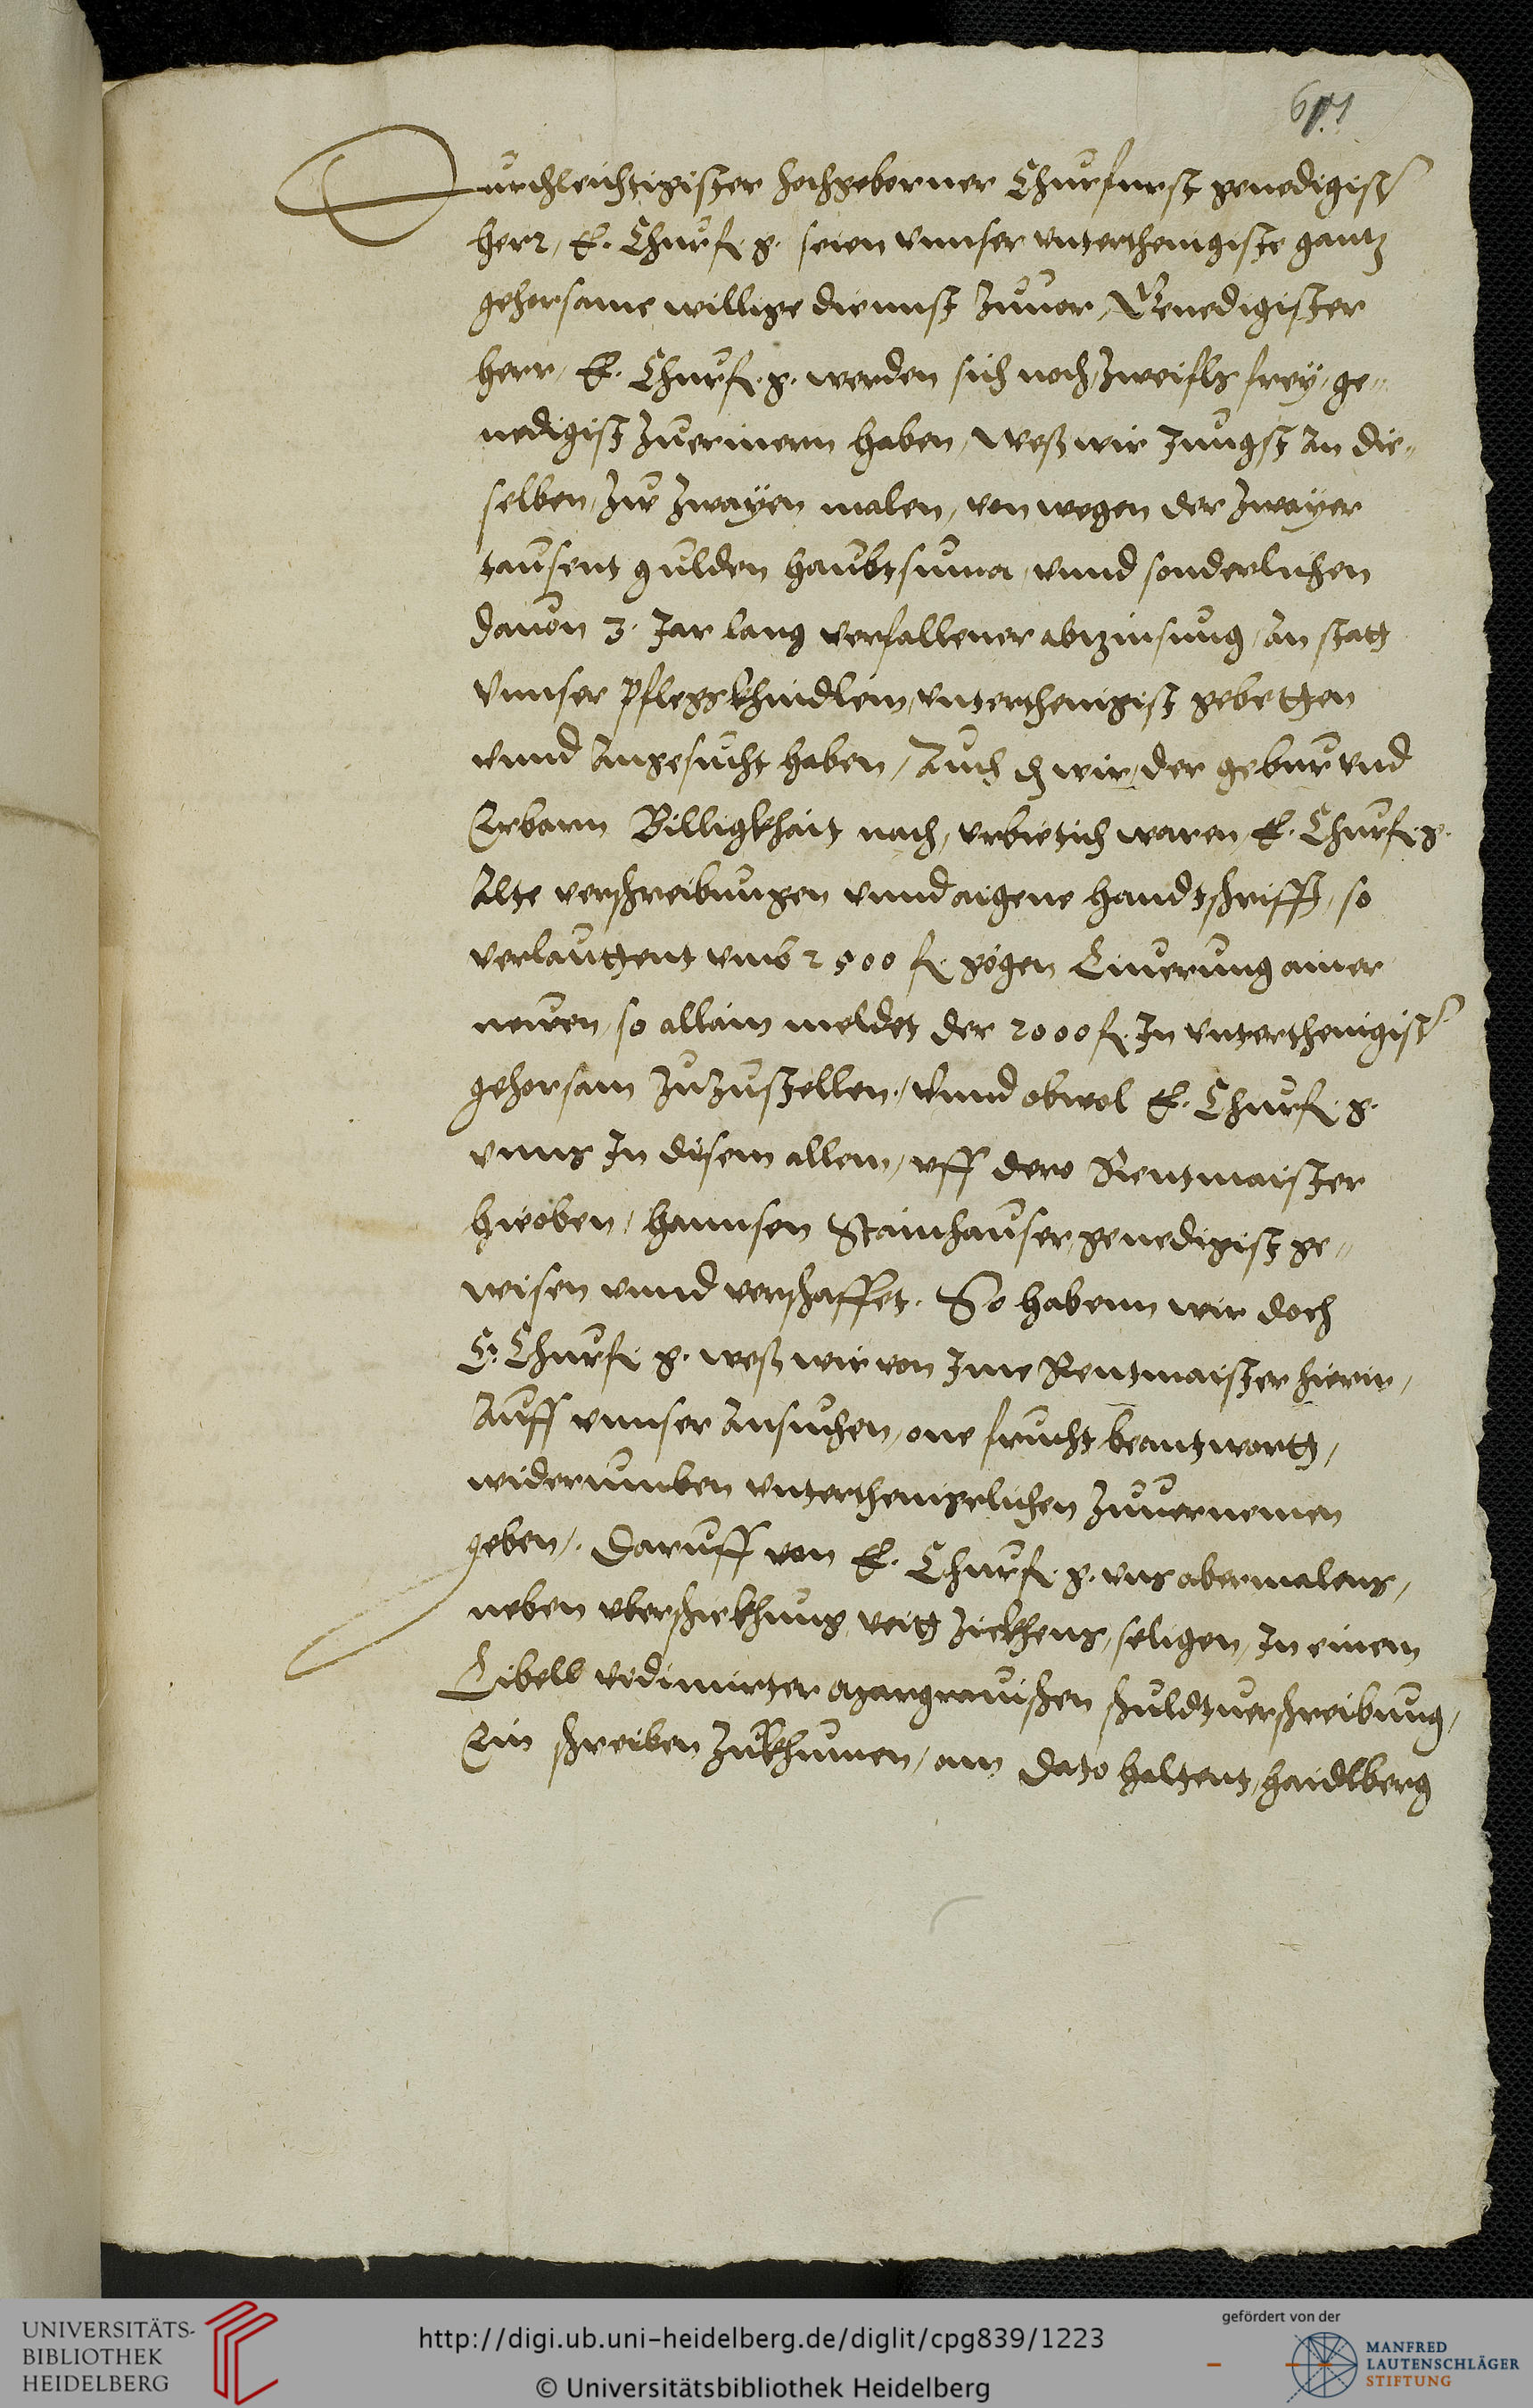 Durchleichtigister hochgeborner Churfurst genedigist
Herr, E. Churf. g. seien vnnser vnterthenigiste gantz
gehorsame willige diennst zuuor, Genedigister
Herr, E. Churf. g. werden sich noch, zweifls frey, ge-
nedigist zuerinern haben, weß wir Jungst an die-
selben, zue zwayen malen, von wegen der zwayer
tausent gulden haubtsuma, vnnd sonderlichen
dauon 3. Jar lang verfallener abzinsung, an statt
vnnser Pflegskhindlein, vnterthenigist gebetten
vnnd angesucht haben, Auch dz wir, der gebur vnd
Erbarn Billigkhait nach, vrbietich waren, E. Churf. g.
Alte verschreibungen vnnd aigene handtschrifft, so
verlauttent vmb 2500 fl. gögen Liuerung ainer
newen, so allain meldet der 2000 fl. In vnterthenigist
gehorsam zuzustellen, Vnnd obwol E. Churf. g.
vnns In disem allem, vff dero Rentmaister
hieoben, Hannsen Stainhauser, genedigist ge-
wisen vnnd verschaffet. So habenn wir doch
E. Churf. g. weß wir von Ime Rentmaister hierin,
Auff vnnser Ansuchen, one frucht beantwortt,
widerumben vnterthenigelichen zuuernemen
geben, Daruff von E. Churf. g. vns abermalens,
neben vberschickhung, veitt Zickhens, seligen, In einem
Libell vidimirter Margrauischen schuldtuerschreibung,
Ein schreiben zukhumen, am dato haltent, Haidlberg
UNIVERSITÄTS-
BIBLIOTHEK
HEIDELBERG
http://digi.ub.uni-heidelberg.de/diglit/cpg839/1223
© Universitätsbibliothek Heidelberg
gefördert von der
MANFRED
LAUTENSCHLÄGER
STIFTUNG